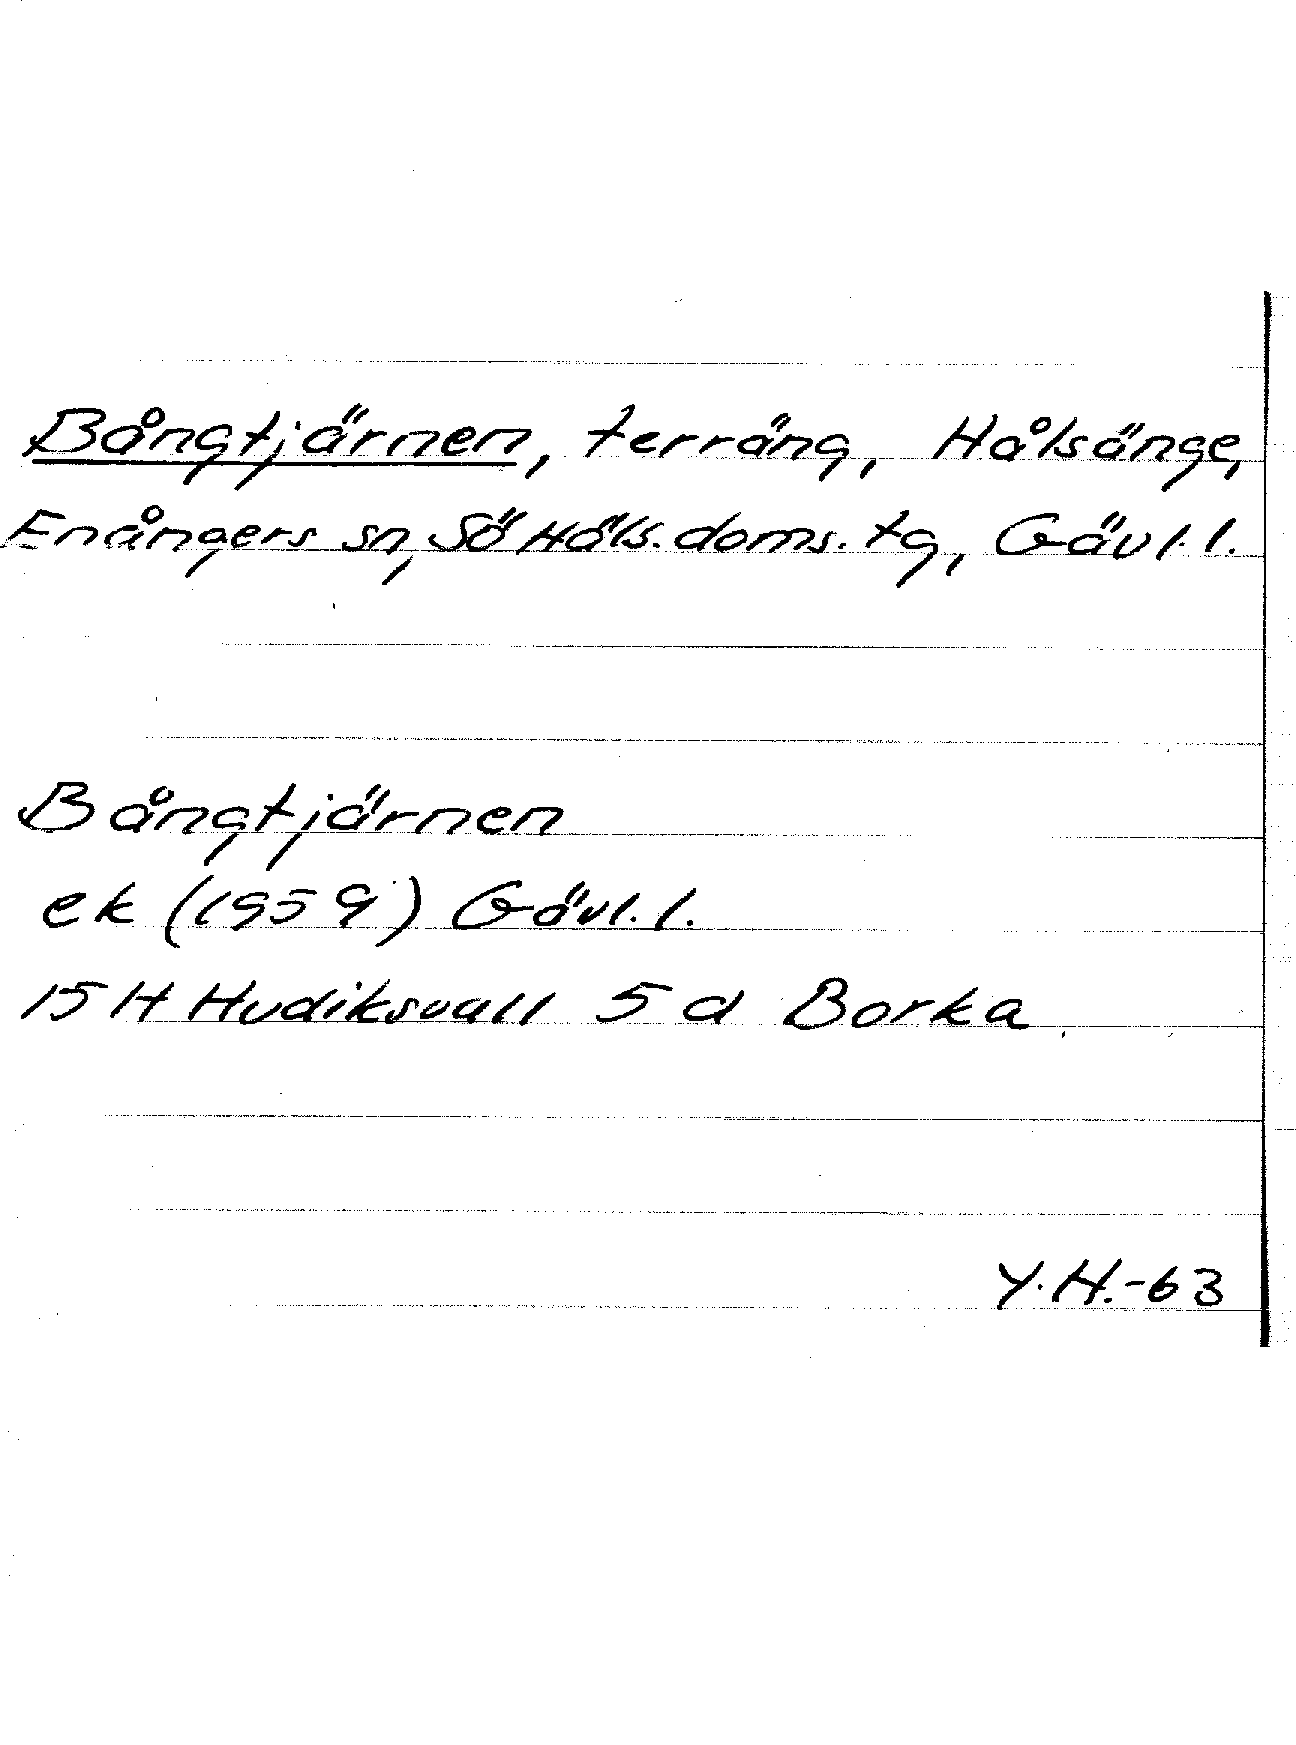 Bångtjärnen, terräng, Hålsänge,
Enångers sn, Sö Häls. doms. tg, Gävl. l.
Bångtjärnen
ek (1959) Gävl. l.
15 H Hudiksvall 5 d Borka
Y.H.-63